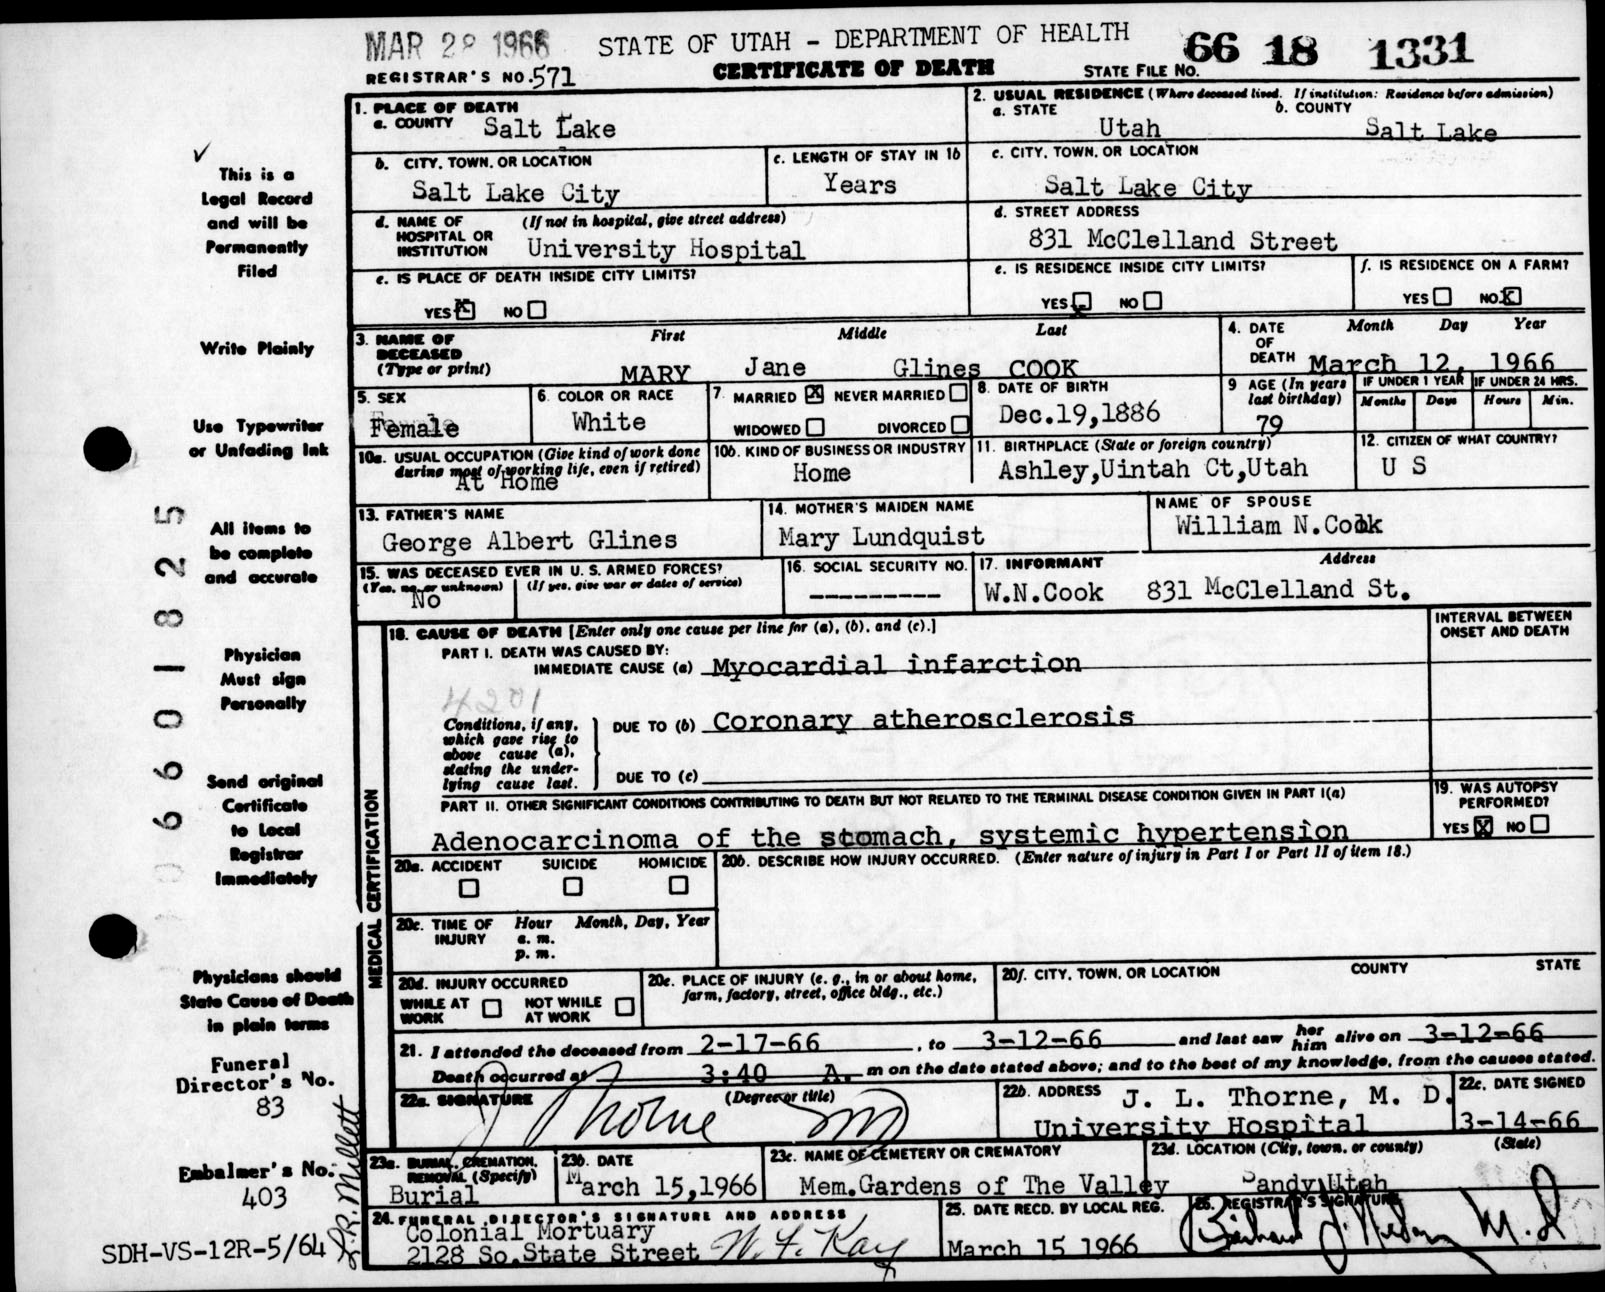 MAR 28 1966 STATE OF UTAH - DEPARTMENT OF HEALTH 66 18 1331
REGISTRAR'S NO. 571 CERTIFICATE OF DEATH STATE FILE NO.
1. PLACE OF DEATH
a. COUNTY Salt Lake
2. USUAL RESIDENCE (Where deceased lived. If institution: Residence before admission)
a. STATE Utah b. COUNTY Salt Lake
b. CITY, TOWN, OR LOCATION Salt Lake City
c. LENGTH OF STAY IN 1b Years
c. CITY, TOWN, OR LOCATION Salt Lake City
d. NAME OF HOSPITAL OR INSTITUTION (If not in hospital, give street address) University Hospital
d. STREET ADDRESS 831 McClelland Street
e. IS PLACE OF DEATH INSIDE CITY LIMITS?
YES X NO
e. IS RESIDENCE INSIDE CITY LIMITS?
YES X NO
f. IS RESIDENCE ON A FARM?
YES NO X
3. NAME OF DECEASED (Type or print) First Middle Last
MARY Jane Glines COOK
4. DATE OF DEATH Month Day Year
March 12, 1966
5. SEX Female
6. COLOR OR RACE White
7. MARRIED X NEVER MARRIED
WIDOWED DIVORCED
8. DATE OF BIRTH Dec.19,1886
9 AGE (In years last birthday) 79
IF UNDER 1 YEAR Months Days
IF UNDER 24 HRS. Hours Min.
10a. USUAL OCCUPATION (Give kind of work done during most of working life, even if retired) At Home
10b. KIND OF BUSINESS OR INDUSTRY Home
11. BIRTHPLACE (State or foreign country) Ashley,Uintah Ct,Utah
12. CITIZEN OF WHAT COUNTRY? U S
13. FATHER'S NAME George Albert Glines
14. MOTHER'S MAIDEN NAME Mary Lundquist
NAME OF SPOUSE William N.Cook
15. WAS DECEASED EVER IN U. S. ARMED FORCES?
(Yes, no, or unknown) (If yes, give war or dates of service)
No
16. SOCIAL SECURITY NO. ---------
17. INFORMANT Address
W.N.Cook 831 McClelland St.
MEDICAL CERTIFICATION
18. CAUSE OF DEATH [Enter only one cause per line for (a), (b), and (c).]
INTERVAL BETWEEN ONSET AND DEATH
PART I. DEATH WAS CAUSED BY:
IMMEDIATE CAUSE (a) Myocardial infarction
4201
Conditions, if any, which gave rise to above cause (a), stating the underlying cause last.
DUE TO (b) Coronary atherosclerosis
DUE TO (c)
PART II. OTHER SIGNIFICANT CONDITIONS CONTRIBUTING TO DEATH BUT NOT RELATED TO THE TERMINAL DISEASE CONDITION GIVEN IN PART I(a)
Adenocarcinoma of the stomach, systemic hypertension
19. WAS AUTOPSY PERFORMED?
YES X NO
20a. ACCIDENT SUICIDE HOMICIDE
20b. DESCRIBE HOW INJURY OCCURRED. (Enter nature of injury in Part I or Part II of item 18.)
20c. TIME OF INJURY Hour Month, Day, Year
a. m.
p. m.
20d. INJURY OCCURRED
WHILE AT WORK NOT WHILE AT WORK
20e. PLACE OF INJURY (e. g., in or about home, farm, factory, street, office bldg., etc.)
20f. CITY, TOWN, OR LOCATION COUNTY STATE
21. I attended the deceased from 2-17-66, to 3-12-66 and last saw her him alive on 3-12-66
Death occurred at 3:40 A. m on the date stated above; and to the best of my knowledge, from the causes stated.
22a. SIGNATURE (Degree or title)
J Thorne MD
22b. ADDRESS J. L. Thorne, M. D.
University Hospital
22c. DATE SIGNED 3-14-66
23a. BURIAL, CREMATION, REMOVAL (Specify) Burial
23b. DATE March 15,1966
23c. NAME OF CEMETERY OR CREMATORY Mem.Gardens of The Valley
23d. LOCATION (City, town, or county) (State)
Sandy,Utah
24. FUNERAL DIRECTOR'S SIGNATURE AND ADDRESS
Colonial Mortuary
2128 So.State Street W. F. Kay
25. DATE RECD. BY LOCAL REG. March 15 1966
26. REGISTRAR'S SIGNATURE
M.D
This is a
Legal Record
and will be
Permanently
Filed
Write Plainly
Use Typewriter
or Unfading Ink
All items to
be complete
and accurate
Physician
Must sign
Personally
Send original
Certificate
to Local
Registrar
Immediately
Physicians should
State Cause of Death
in plain terms
Funeral
Director's No.
83
Embalmer's No.
403
L.R. Millett
SDH-VS-12R-5/64
0 6 6 0 1 8 2 5